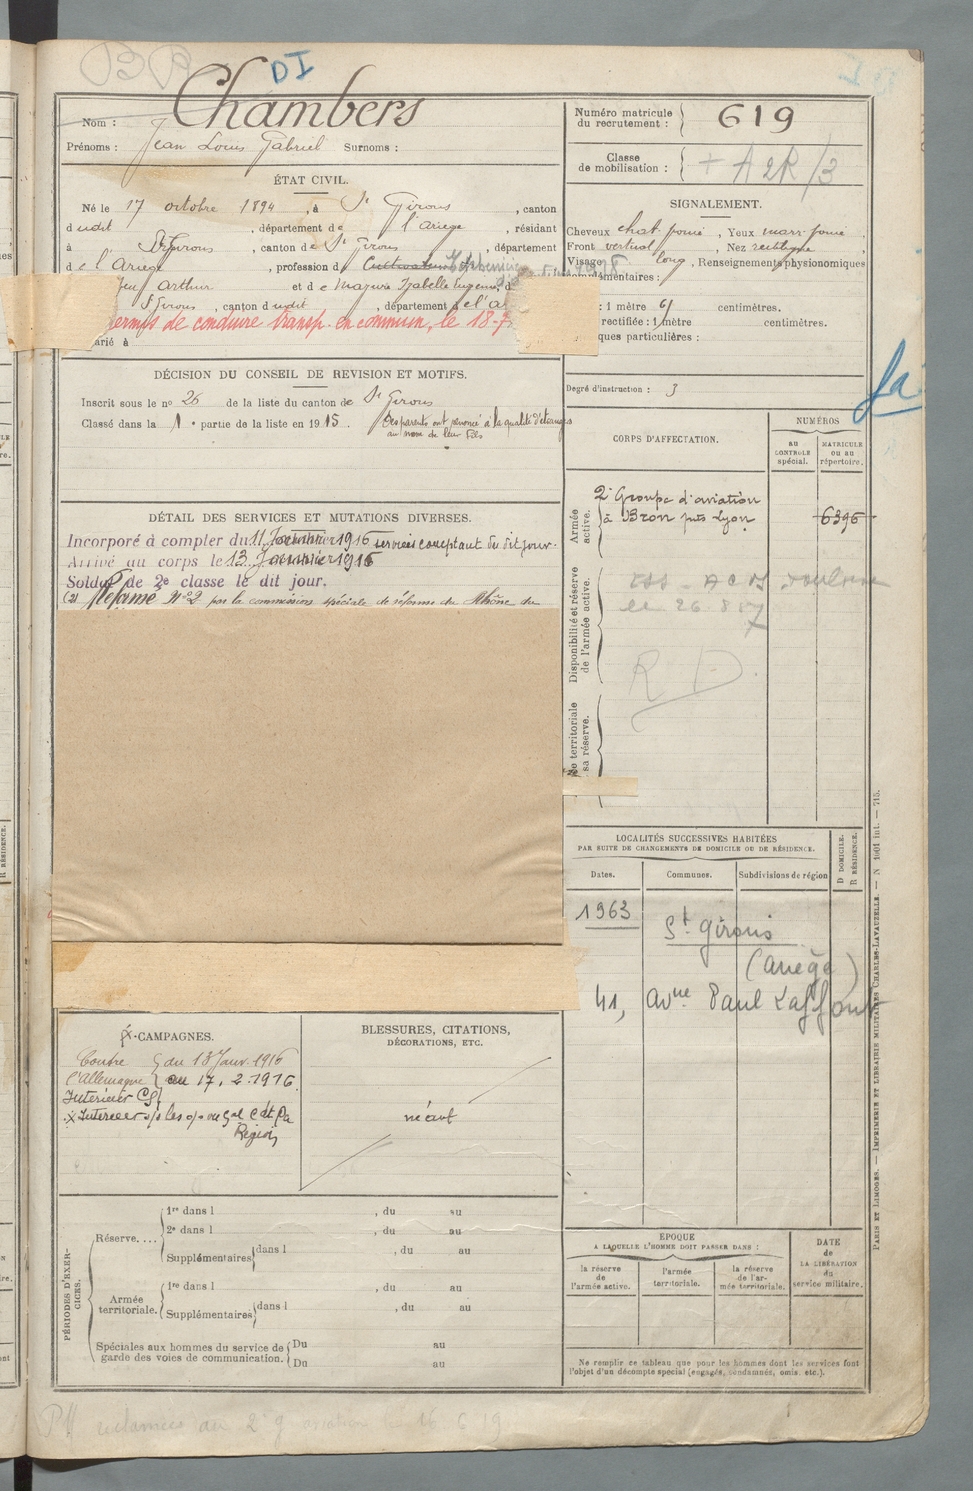 DI
Chambers
Nom :
Prénoms : Jean Louis Gabriel Surnoms :
Numéro matricule du recrutement : 619
Classe de mobilisation : + A 2R/3
ÉTAT CIVIL.
Né le 17 octobre 1894, à St Girons, canton
dudit, département de l'Ariege, résidant
à St Girons, canton de St Girons, département
de l'Ariege, profession de Cultivateur
Arthur et de Mazure Izabelle
St Girons, canton dudit, département de l'A
ermis de conduire transp. en commun, le 18-7
arié à
SIGNALEMENT.
Cheveux chat. foncé, Yeux marr. foncé
Front vertical, Nez rectiligne
Visage long, Renseignements physionomiques
complémentaires :
: 1 mètre 61 centimètres.
rectifiée : 1 mètre centimètres.
ques particulières :
Degré d'instruction : 3
DÉCISION DU CONSEIL DE REVISION ET MOTIFS.
Inscrit sous le no 26 de la liste du canton de St Girons
Classé dans la 1e partie de la liste en 1915. Ses parents ont renoncé à la qualité d'étranger
au nom de leur fils
DÉTAIL DES SERVICES ET MUTATIONS DIVERSES.
Incorporé à compter du 11 Janvier 1916 services comptant du dit jour.
Arrivé au corps le 13 Janvier 1916
Soldat de 2e classe le dit jour.
Réformé No 2 par la commission spéciale de réforme du Rhône du
CORPS D'AFFECTATION.
NUMÉROS
AU CONTROLE spécial.
MATRICULE ou au répertoire.
Armée active.
2e Groupe d'aviation
à Bron près Lyon
6396
Disponibilité et réserve de l'armée active.
R D
ée territoriale
sa réserve.
LOCALITÉS SUCCESSIVES HABITÉES
PAR SUITE DE CHANGEMENTS DE DOMICILE OU DE RÉSIDENCE.
Dates. Communes. Subdivisions de région
D DOMICILE.
R RÉSIDENCE.
1963 St Girons
(Ariège)
41, Avnue Paul Laffont
CAMPAGNES.
Contre l'Allemagne du 13 Janv. 1916
au 17.2.1916.
Intérieur CS
Région
BLESSURES, CITATIONS,
DÉCORATIONS, ETC.
néant
PÉRIODES D'EXERCICES.
Réserve....
1re dans l , du au
2e dans l , du au
Supplémentaires dans l , du au
Armée territoriale.
1re dans l , du au
Supplémentaires dans l , du au
Spéciales aux hommes du service de
garde des voies de communication.
Du au
Du au
ÉPOQUE
A LAQUELLE L'HOMME DOIT PASSER DANS :
la réserve de l'armée active.
l'armée territoriale.
la réserve de l'armée territoriale.
DATE de LA LIBÉRATION du service militaire.
Ne remplir ce tableau que pour les hommes dont les services font
l'objet d'un décompte spécial (engagés, condamnés, omis, etc.).
PARIS ET LIMOGES. — IMPRIMERIE ET LIBRAIRIE MILITAIRES CHARLES-LAVAUZELLE. — N 1001 int. — 715.